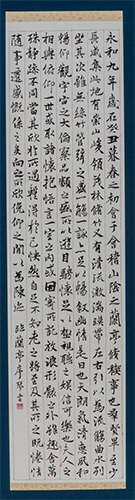 永和九年歲在癸丑暮春之初會于會稽山陰之蘭亭脩稧事也群賢畢至少
長咸集此地有崇山峻領茂林脩竹又有清流激湍暎帶左右引以為流觴曲水列
坐其次雖無絲竹管弦之盛一觴一詠亦足以暢敘幽情是日也天朗氣清惠風和
暢仰觀宇宙之大俯察品類之盛所以遊目騁懷足以極視聽之娛信可樂也夫人之
相與俯仰一世或取諸懷抱悟言一室之內或因寄所託放浪形骸之外雖趣舍萬
殊靜躁不同當其欣於所遇暫得於己快然自足不知老之將至及其所之既惓情
隨事遷感慨係之矣向之所欣俛仰之間以為陳迹
臨蘭亭序